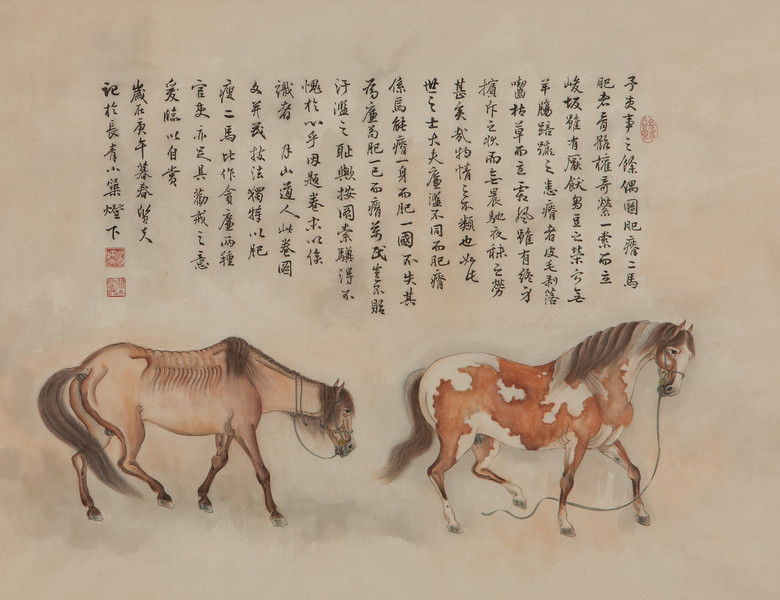 予吏事之餘偶圖肥瘠二馬
肥者骨骼權奇縈一索而立
峻坡雖有厭飫芻豆之榮寧無
羊腸踏蹶之患瘠者皮毛剝落
嚙枯草而立霜風雖有終身
擯斥之狀而無晨馳夜秣之勞
甚矣哉物情之不類也如此
世之士大夫廉濫不同而肥瘠
係焉能瘠一身而肥一國不失其
為廉苟肥一己而瘠萬民豈不貽
汙濫之恥歟按圖索驥得不
愧於心乎因題卷末以俟
識者 月山道人此卷圖
文并茂技法獨特以肥
瘦二馬比作貪廉兩種
官吏亦足具勸戒之意
爰臨以自賞
歲在庚午暮春賢父
記於長青小築燈下